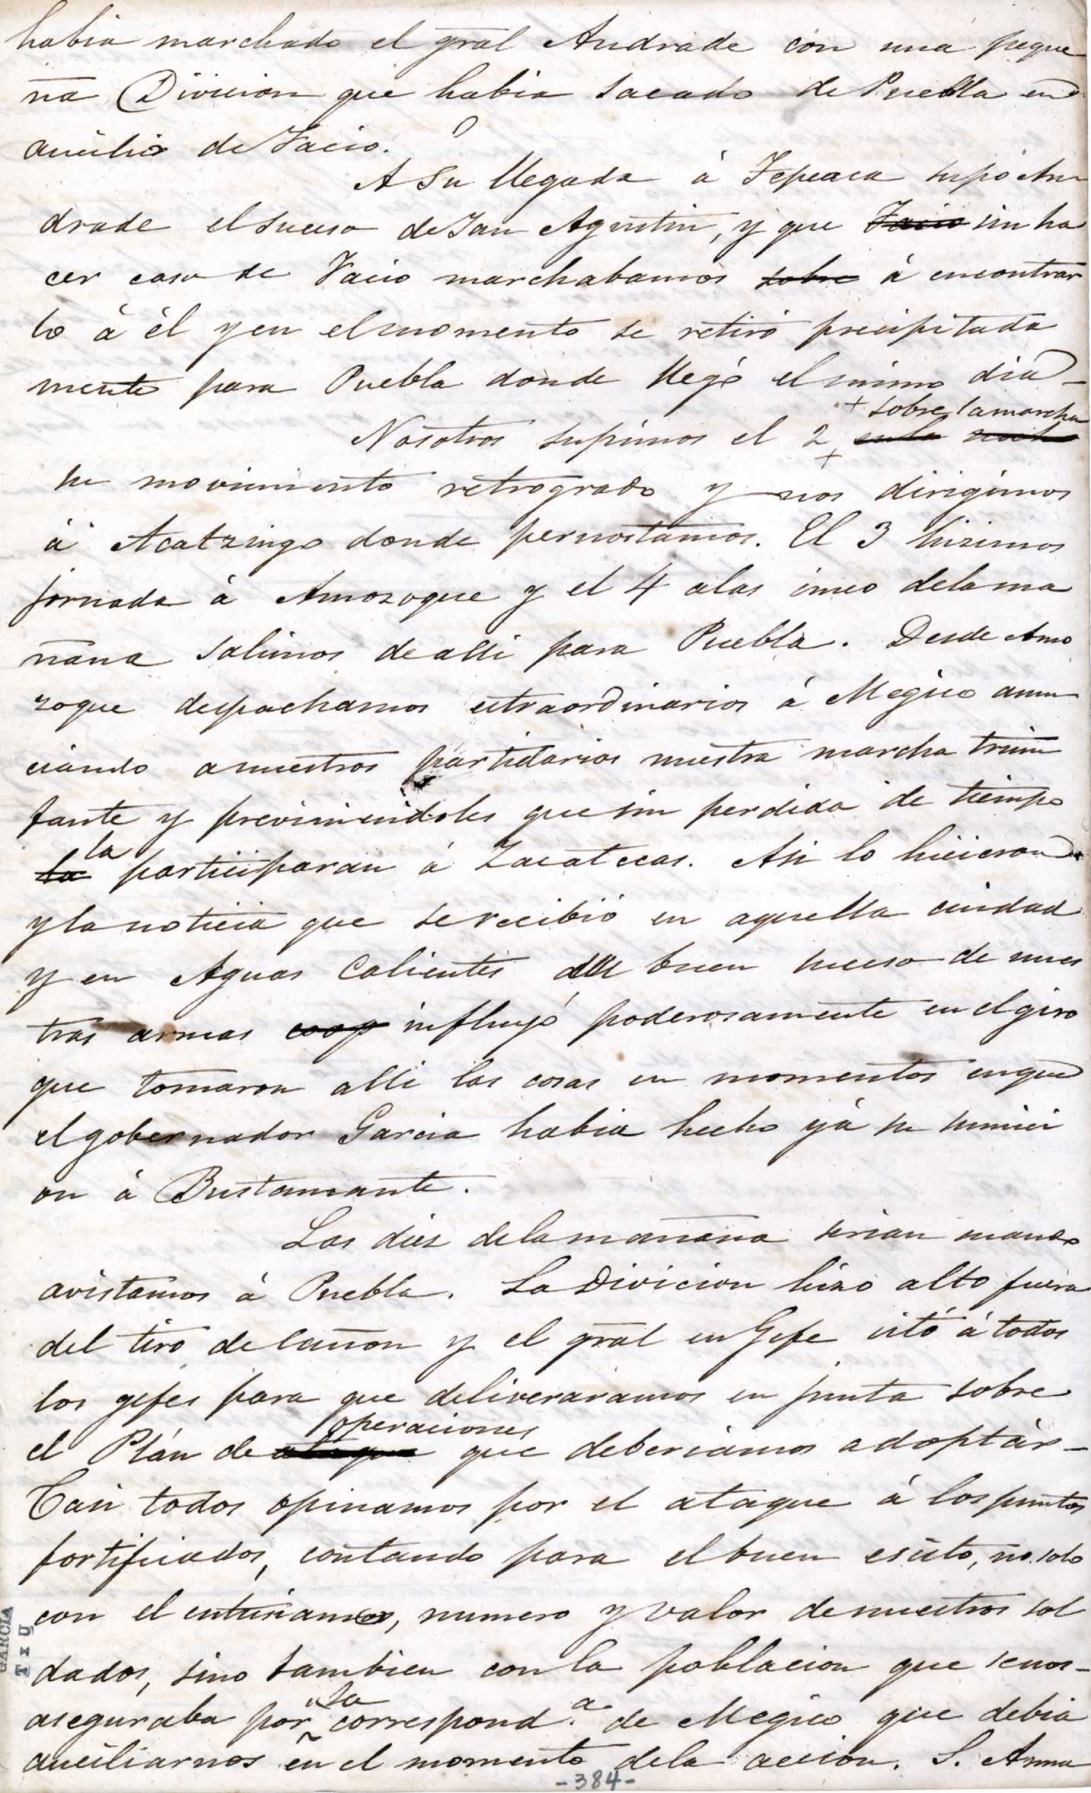 habia marchado el gral Andrade con una peque
ña Division que habia sacado de Puebla en
aucilio de Facio.
A su llegada á Tepeaca supo An
drade el suceso de San Agustin, y que Facio sin ha
cer caso de Facio marchabamos sobre á encontrar
lo á él y en el momento se retiró precipitada
mente para Puebla donde llegó el mismo dia
+ sobre la marcha
Nosotros supimos el 2 en la noche
su movimiento retrogrado y nos dirigimos
á Acatzingo donde pernostamos. El 3 hizimos
jornada á Amozoque y el 4 a las cinco de la ma
ñana salimos de alli para Puebla. Desde Amo
zoque despachamos estraordinarios á Megico anun
ciando a nuestros partidarios nuestra marcha triun
fante y previniendoles que sin perdida de tiempo
la
la participaran á Zacatecas. Asi lo hicieron
y la noticia que se recibió en aquella ciudad
y en Aguas Calientes del buen suceso de nues
tras armas coop influyó poderosamente en el giro
que tomaron alli las cosas en momentos en que
el gobernador Garcia habia hecho yá su sumici
on á Bustamante.
Las diez de la mañana serian cuando
avistamos á Puebla. La Divicion hizo alto fuera
del tiro de cañon y el gral en Gefe citó á todos
los gefes para que deliveraramos en junta sobre
operaciones
el Plán de ataque que deberiamos adoptár-
Casi todos opinamos por el ataque á los puntos
fortificados, contando para el buen esito, no solo
con el entusiasmo, numero y valor de nuestros sol
dados, sino tambien con la poblacion que se nos-
la
aseguraba por correspond.a de Megico que debia
auciliarnos en el momento de la accion. S. Anna
-384-
GARCIA